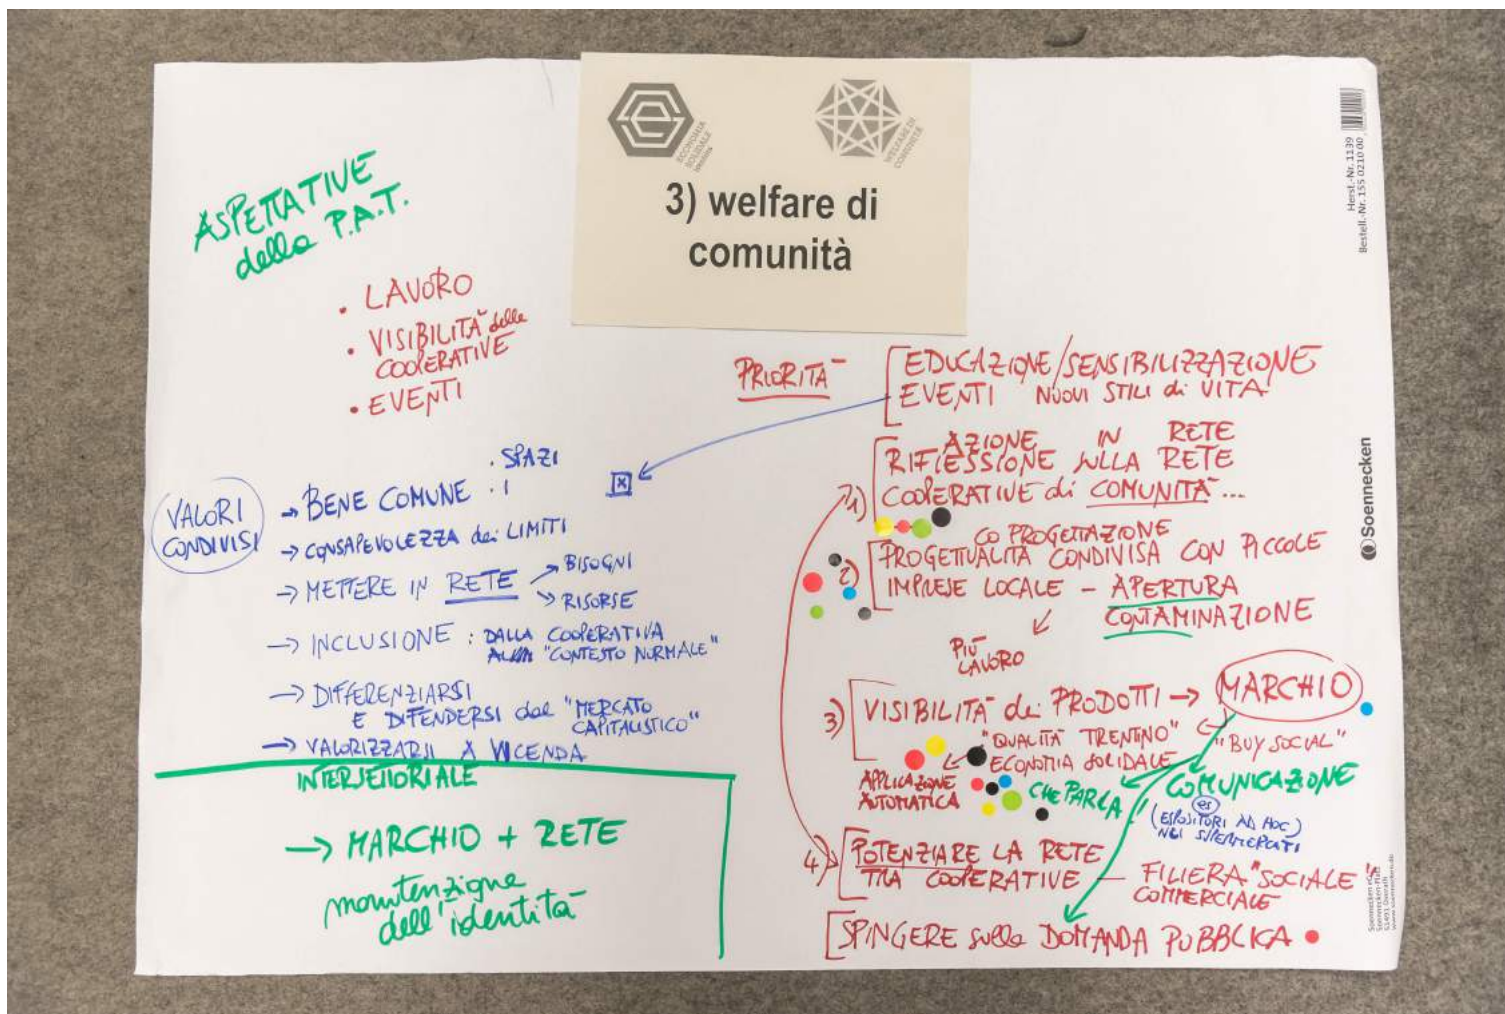 ECONOMIA
SOLIDALE
trentina
WELFARE DI
COMUNITÀ
3) welfare di
comunità
Herst.-Nr. 1139
Bestell.-Nr. 155 0210 00
Soennecken
ASPETTATIVE
della P.A.T.
• LAVORO
• VISIBILITÀ delle
COOPERATIVE
• EVENTI
VALORI
CONDIVISI
→ BENE COMUNE
• SPAZI
→ CONSAPEVOLEZZA dei LIMITI
→ METTERE IN RETE
→ BISOGNI
→ RISORSE
→ INCLUSIONE : DALLA COOPERATIVA
"CONTESTO NORMALE"
→ DIFFERENZIARSI
E DIFENDERSI dal "MERCATO
CAPITALISTICO"
→ VALORIZZARSI A VICENDA
INTERSETTORIALE
→ MARCHIO + RETE
manutenzione
dell'identità
PRIORITÀ
EDUCAZIONE/SENSIBILIZZAZIONE
EVENTI NUOVI STILI di VITA
AZIONE IN RETE
1) RIFLESSIONE SULLA RETE
COOPERATIVE di COMUNITÀ ...
CO PROGETTAZIONE
2) PROGETTUALITÀ CONDIVISA CON PICCOLE
IMPRESE LOCALE - APERTURA
CONTAMINAZIONE
PIÙ
LAVORO
3) VISIBILITÀ dei PRODOTTI → MARCHIO
"QUALITÀ TRENTINO"
ECONOMIA SOLIDALE
"BUY SOCIAL"
APPLICAZIONE
AUTOMATICA
CHE PARLA!
COMUNICAZIONE
es
(ESPOSITORI AD HOC)
NEI SUPERMERCATI
4) POTENZIARE LA RETE
TRA COOPERATIVE — FILIERA "SOCIALE
COMMERCIALE
SPINGERE sulla DOMANDA PUBBLICA
Soennecken eG
Soennecken-Platz
51491 Overath
www.soennecken.de